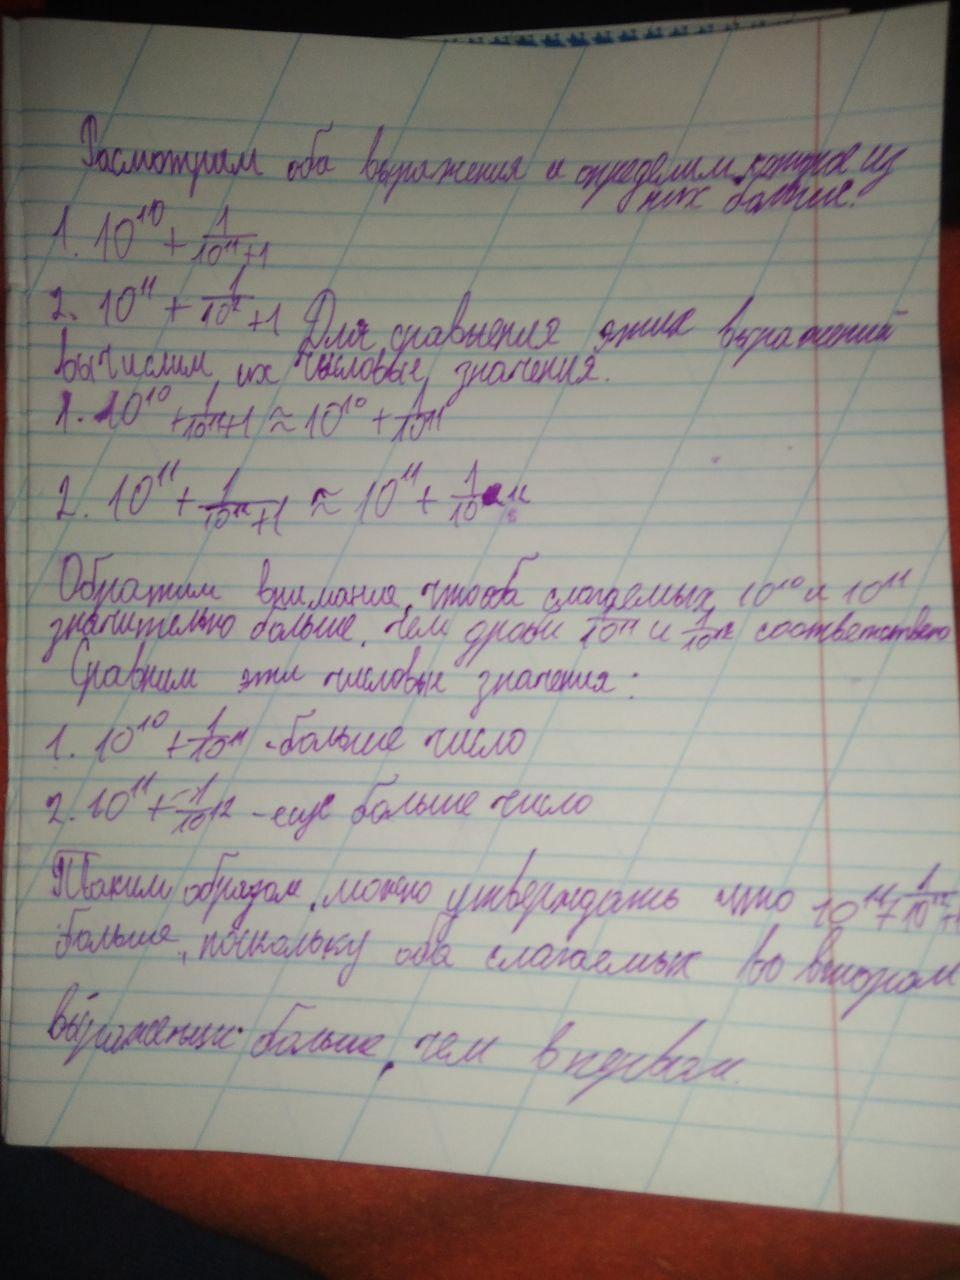 Расмотрим оба выражения и определим, которое из
них больше.
1. 10¹⁰ + 1/(10¹¹+1)
2. 10¹¹ + 1/10¹² +1 Для сравнения этих выражений
вычислим их числовые значения.
1. 10¹⁰ + 1/(10¹¹+1) ≈ 10¹⁰ + 1/10¹¹
2. 10¹¹ + 1/(10¹²+1) ≈ 10¹¹ + 1/10¹²
Обратим внимание, что оба слагаемых 10¹⁰ и 10¹¹
значительно больше, чем дроби 1/10¹¹ и 1/10¹² соответствено
Сравним эти числовые значения:
1. 10¹⁰ + 1/10¹¹ - больше число
2. 10¹¹ + 1/10¹² - еще больше число
Таким образом, можно утверждать что 10¹¹+1/(10¹²+1)
больше, поскольку оба слагаемых во втором
выражении больше, чем в первом.